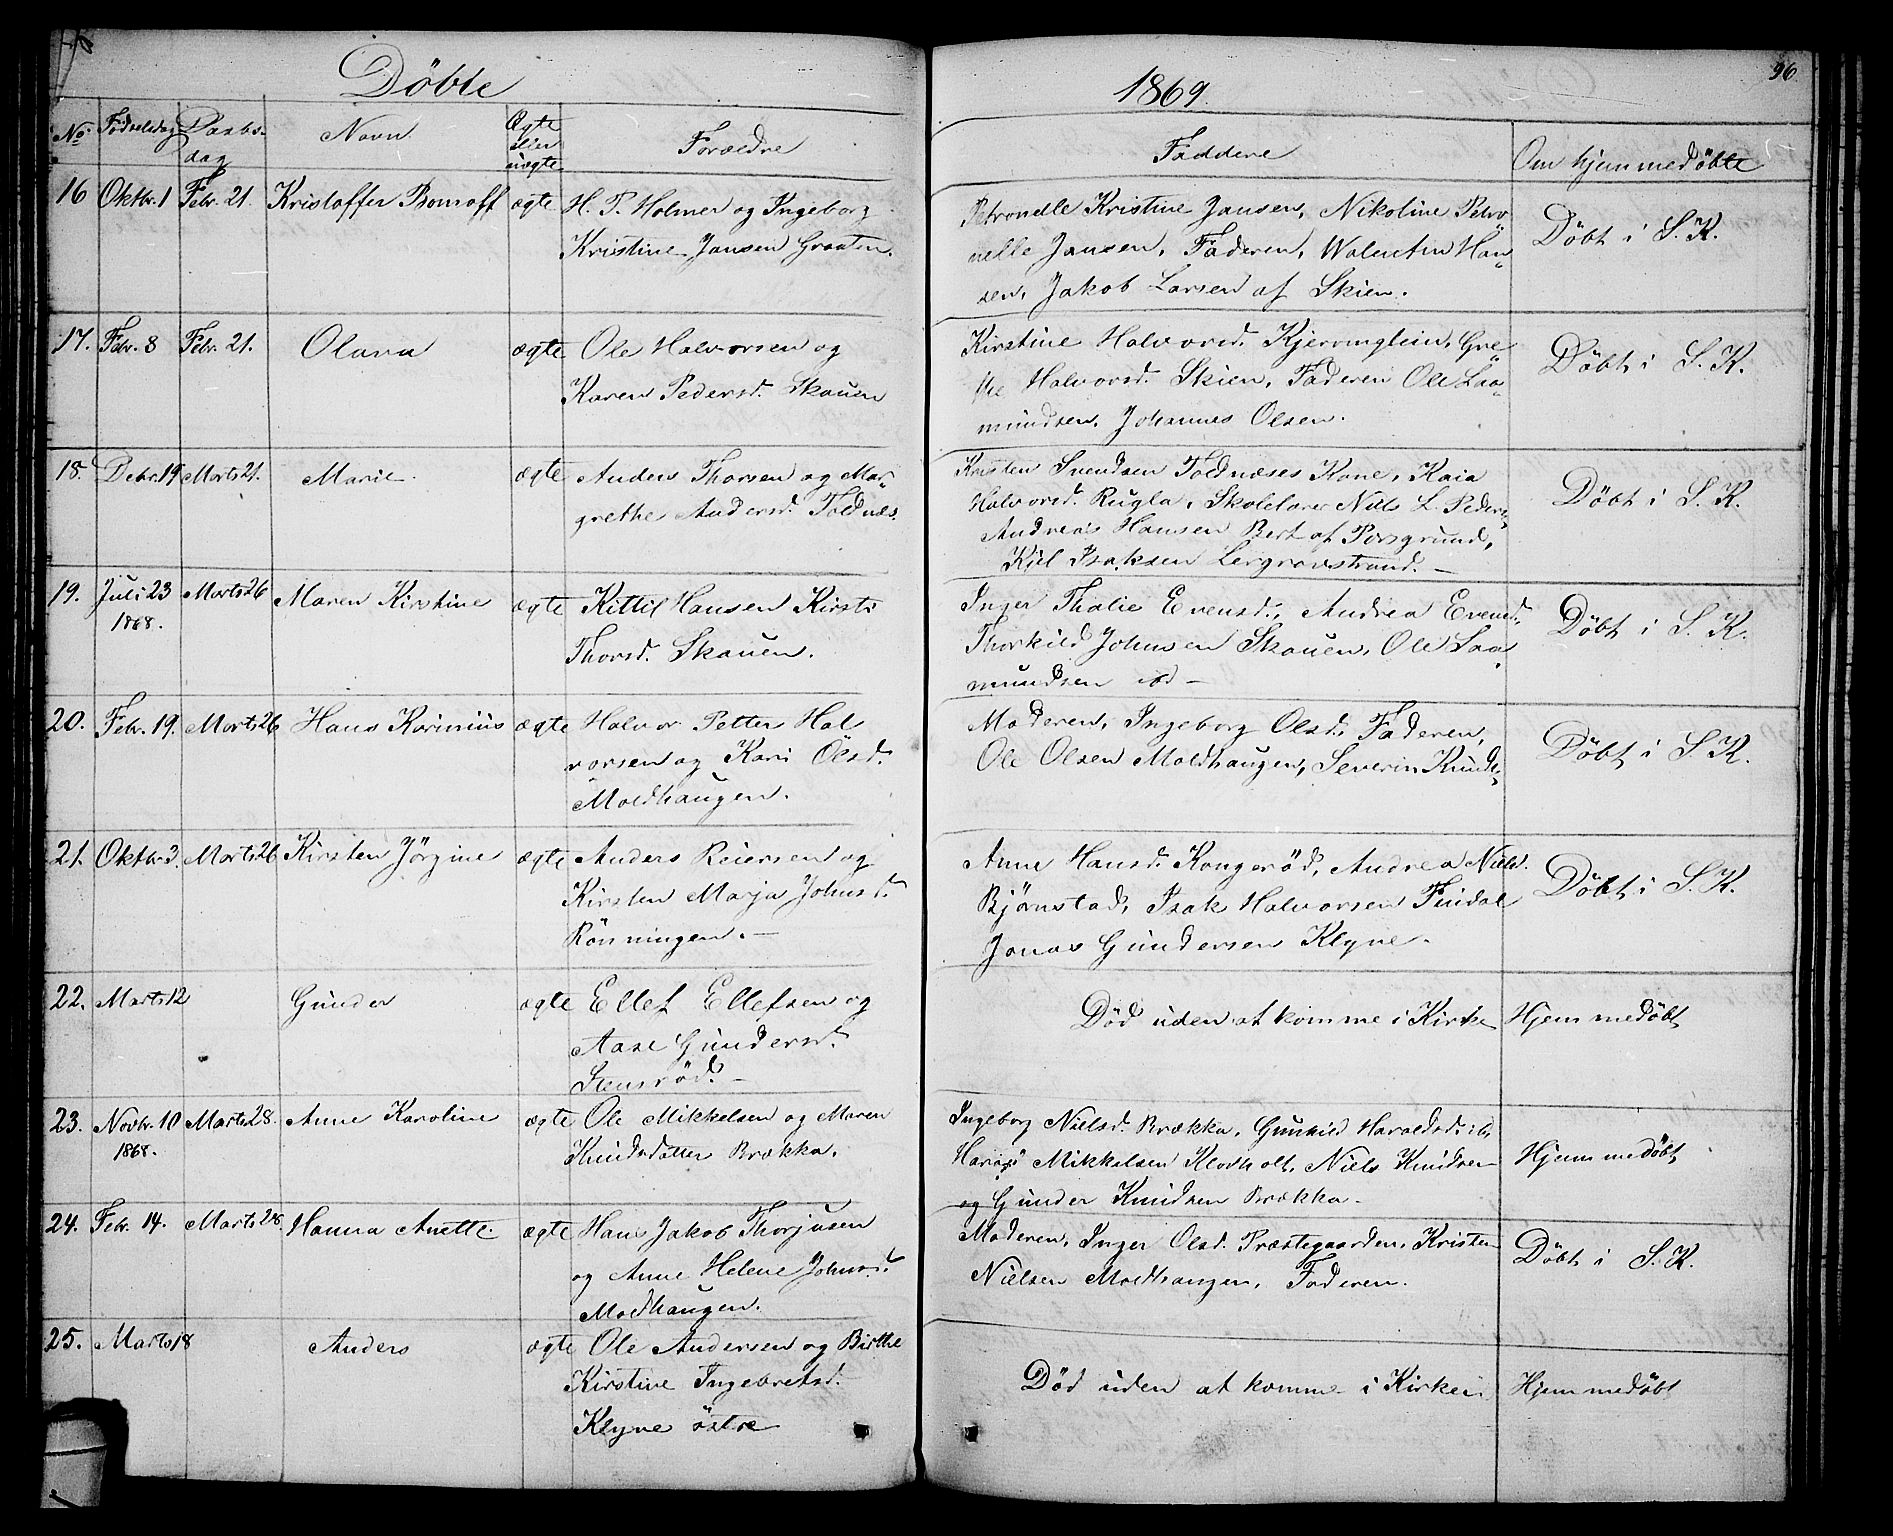 Döbte
No. Födselsdag Daabsdag Navn Ægte eller uægte Forældre
16 Oktbr. 1 Febr. 21. Kristoffer ægte H. P. Holmer og Ingeborg
Kristine Jansen Graaten.
17. Febr. 8 Febr. 21. Olava ægte Ole Halvorsen og
Karen Pedersd. Skauen
18. Debr. 19 Marts 21. Marie ægte Anders Thorsen og Mar-
grethe Andersd. Foldnæs.
19. Juli 23 Marts 26 Maren Kirstine ægte Kittil Hansen Kirsti
1868. Thorsd. Skauen.
20. Febr. 19. Marts 26 Hans Karinius ægte Halvor Petter Hal
vorsen og Kari Olsd.
Moldhaugen.
21. Oktbr. 3. Marts 26 Kirsten Jörgine ægte Anders Reiersen og
Kirsten Marja Johnsd.
Rönningen. —
22. Marts 12 Gunder ægte Ellef Ellefsen og
Aase Gundersd.
Stensröd. —
23. Novbr. 10 Marts 28. Anne Karoline ægte Ole Mikkelsen og Maren
1868. Knudsdatter Brækka.
24. Febr. 14. Marts 28. Hanna Anette ægte Hans Jakob Thorjusen
og Anne Helene Johnsd.
Moldhaugen.
25. Marts 18 Anders ægte Ole Andersen og Birthe
Kirstine Ingebretsd.
Klyve östre
96
1869.
Faddere Om hjemmedöbte
Petronelle Kristine Jansen, Nikoline Petro
nelle Jansen, Faderen, Walentin Han- Döbt i S. K.
sen, Jakob Larsen af Skien.
Kirstine Halvorsd. Gre
the Halvorsd. Skien, Faderen Ole Laa- Döbt i S. K.
mundsen, Johannes Olsen.
Kristen Svendsen Foldnæses Kone, Kaia
Halvorsd. Rugla, Skolelærer Niels L. Peders. Döbt i S. K.
Andreas Hansen Bert af Porsgrund,
Kjel Isaksen Lergravstrand. —
Inger Thalie Evensd., Andrea Evensd.
Thorkild Johnsen Skauen, Ole Laa Döbt i S. K.
mundsen —
Moderen, Ingeborg Olsd. Faderen,
Ole Olsen Moldhaugen, Severin Knuds. Döbt i S. K.
Anne Hansd. Kongeröd, Andrea Nielsd.
Björnstad, Isak Halvorsen Findal Döbt i S. K.
Jonas Gundersen Klyve.
Död uden at komme i Kirke Hjemmedöbt
Ingeborg Nielsd. Brækka, Gunhild Haraldsd. ib,
Mikkelsen Klovholt, Niels Knudsen Hjemmedöbt
og Gunder Knudsen Brækka.
Moderen, Inger Olsd. Præstegaarden, Kristen
Nielsen Moldhaugen, Faderen. Döbt i S. K.
Död uden at komme i Kirken Hjemmedöbt